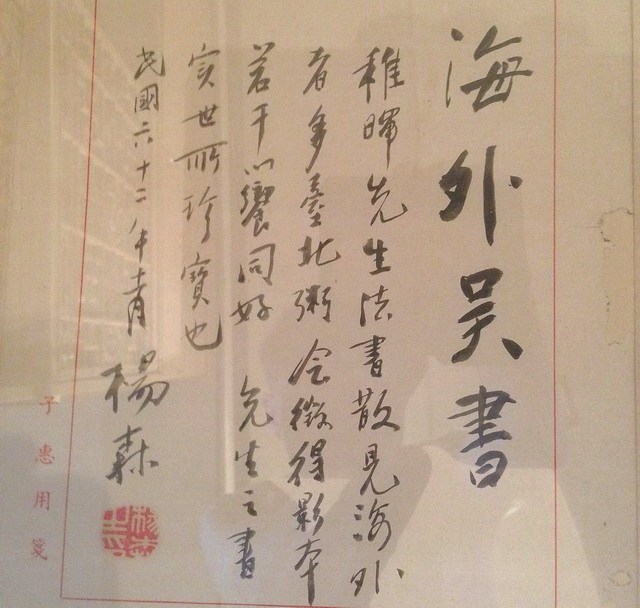 海外吴書
稚暉先生法書散見海外
者多臺北粥会徵得影本
若干以饗同好 先生之書
实世所珍寶也
民國六十二年青月 楊森
子惠用箋